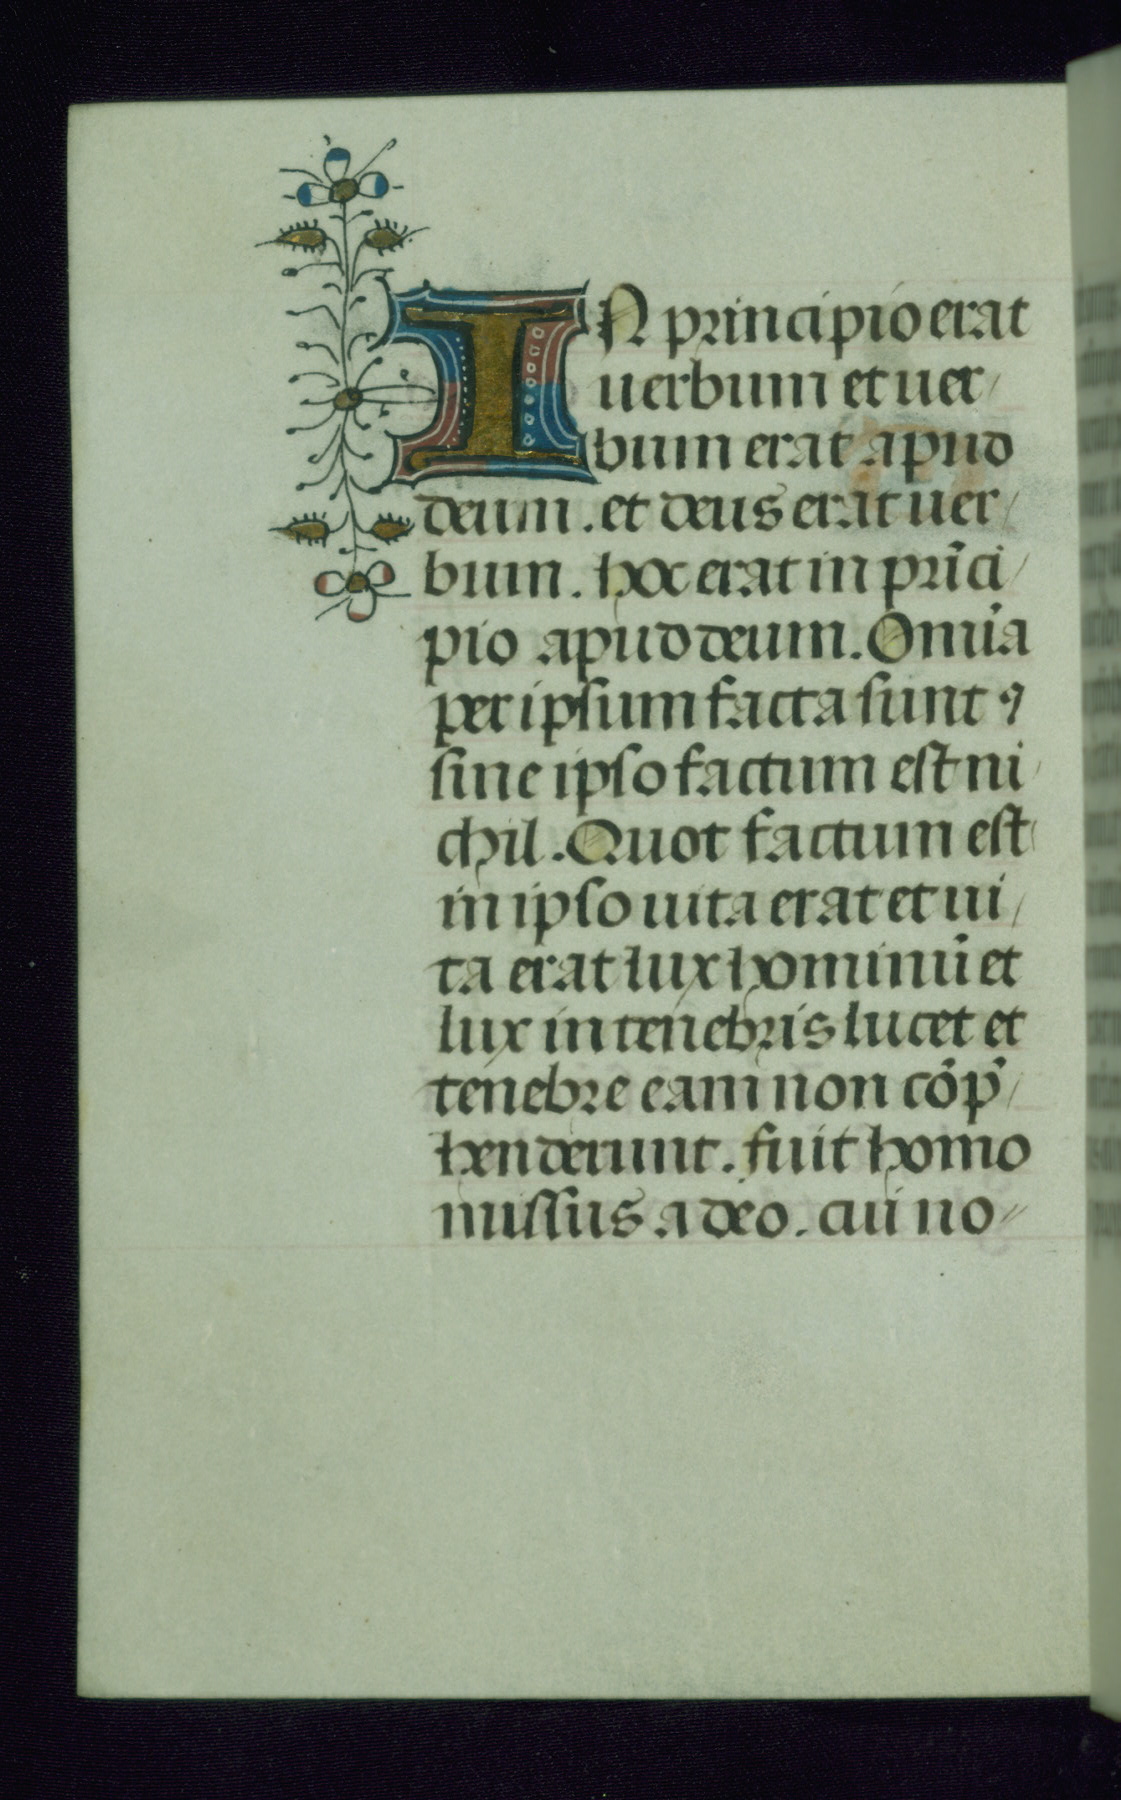 IN principio erat
uerbum et uer/
bum erat apud
deum. et deus erat uer/
bum. hoc erat in prīci/
pio apud deum. Omīa
per ipsum facta sunt ꝯ
sine ipso factum est ni/
chil. Quot factum est
in ipso uita erat et ui/
ta erat lux hominū et
lux in tenebris lucet et
tenebre eam non cōp̄/
henderunt. fuit homo
missus a deo. cui no//